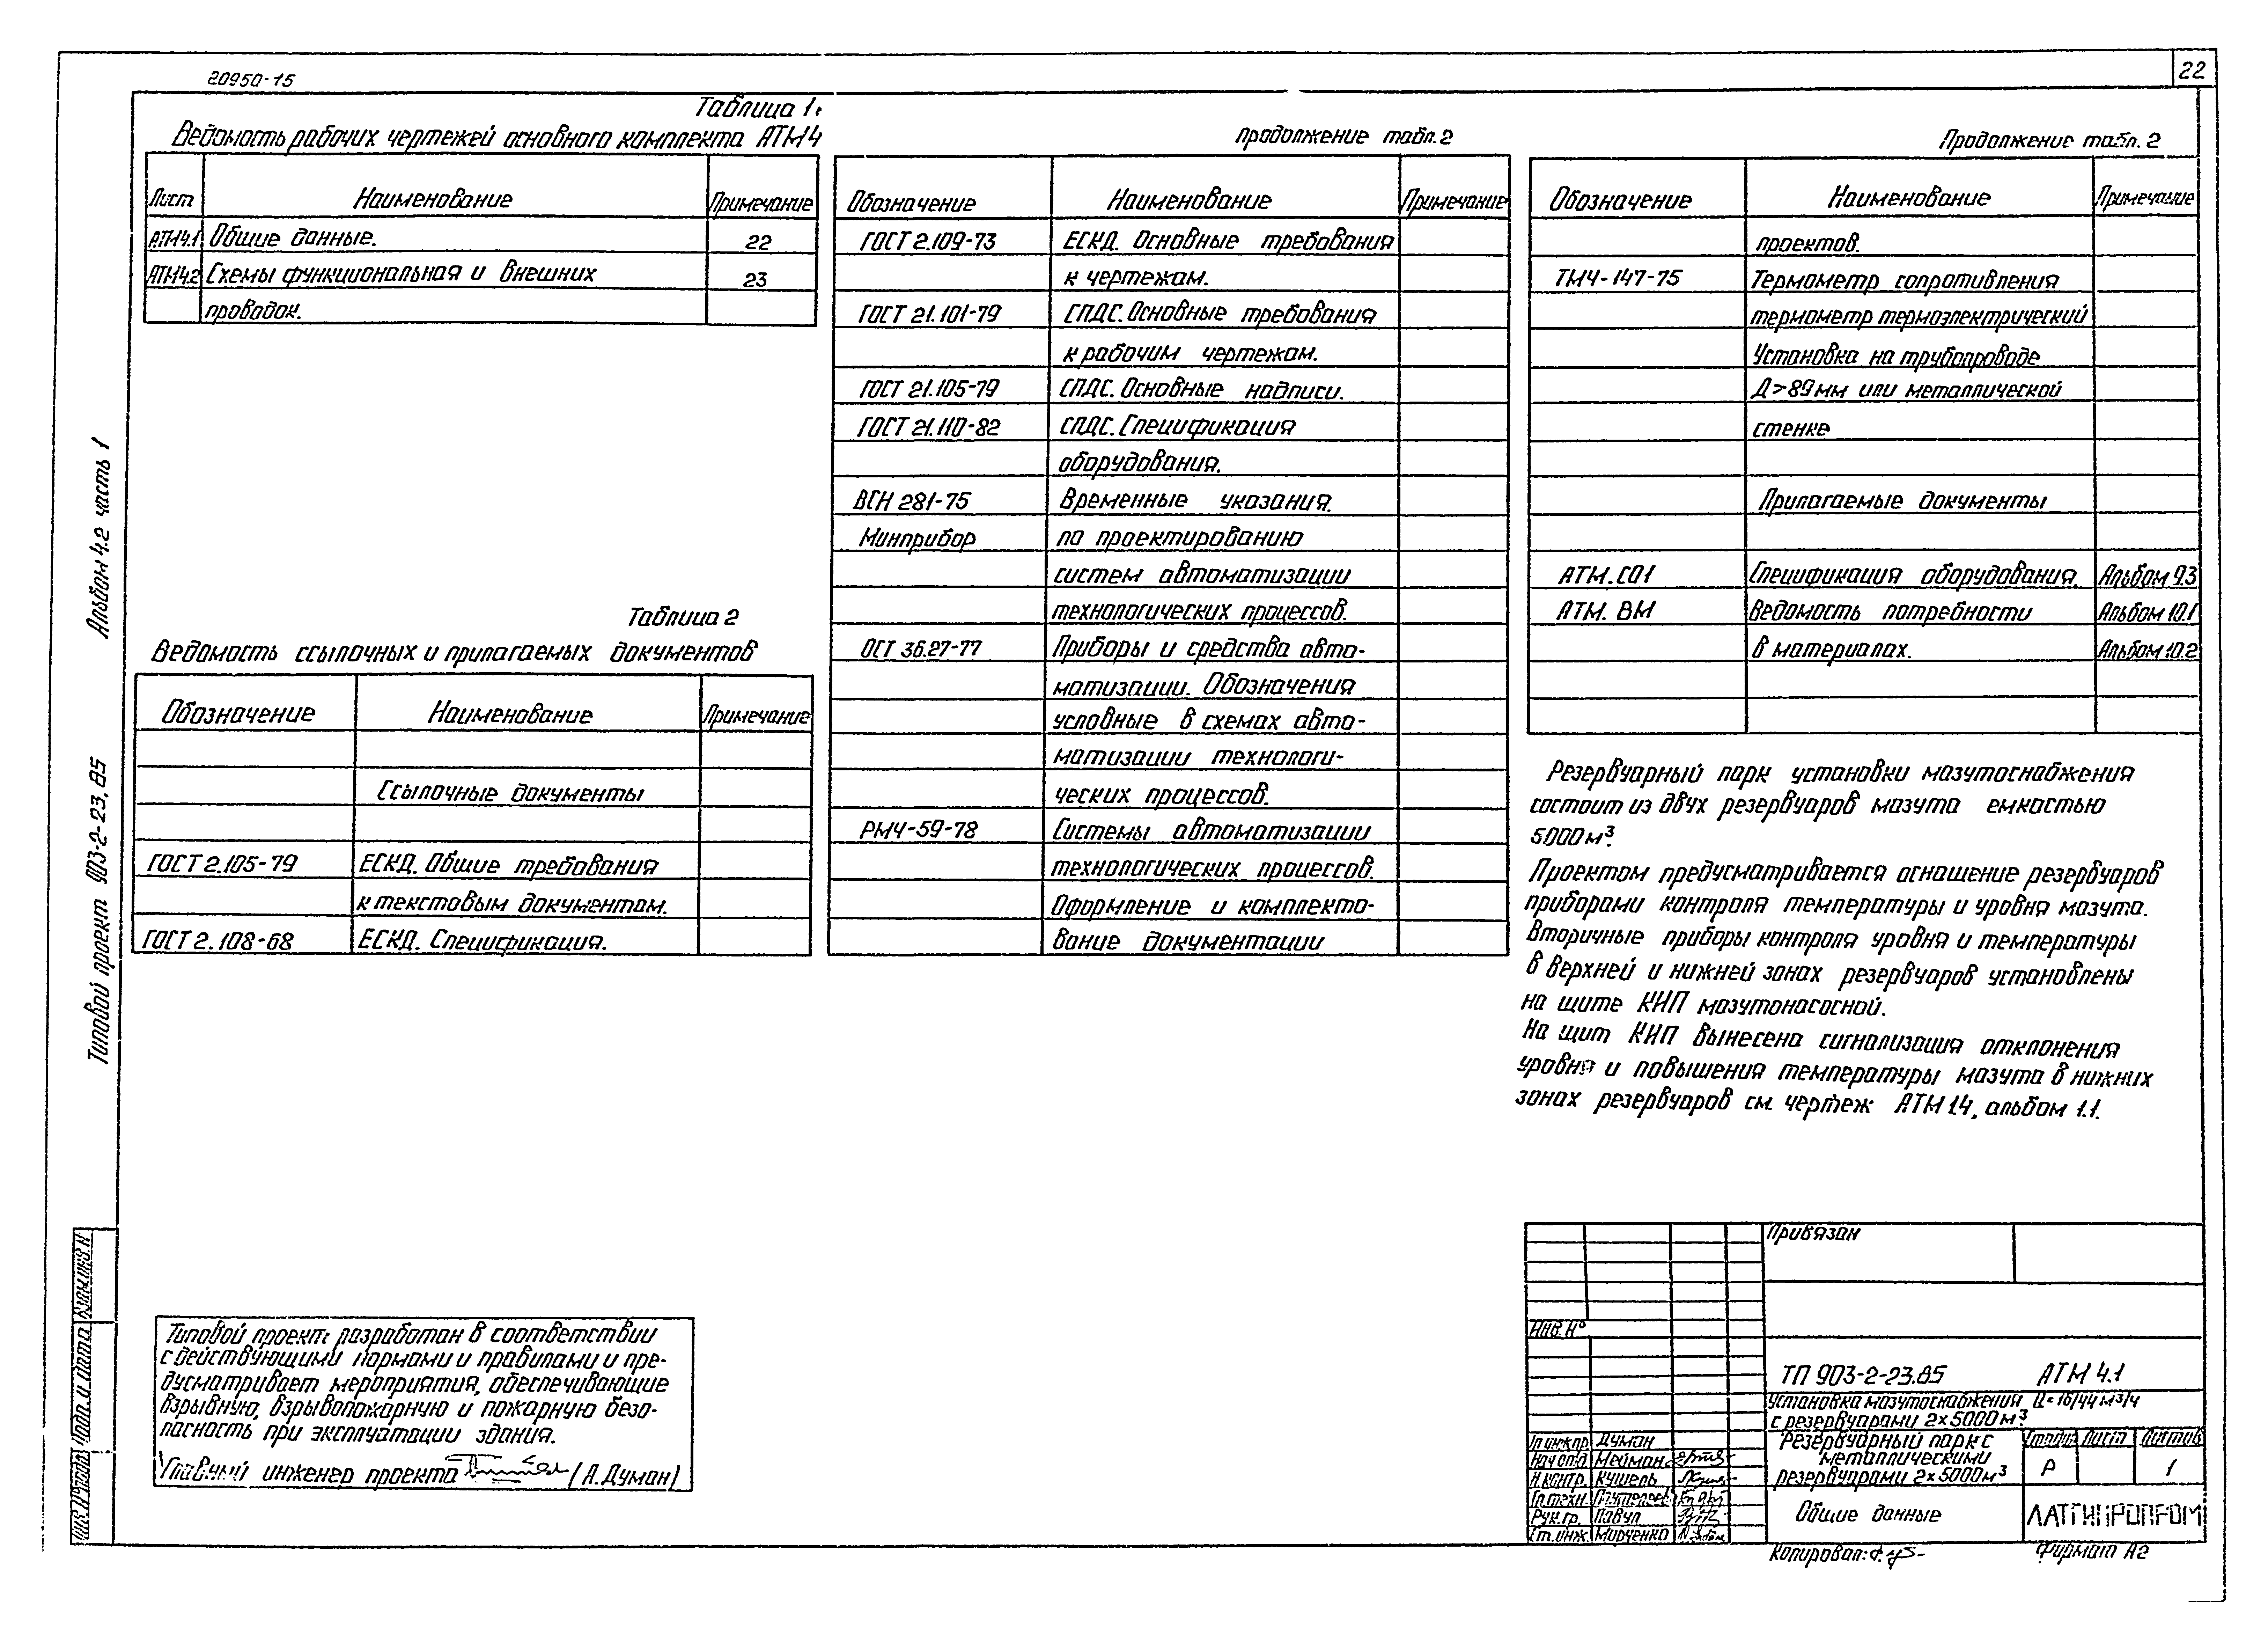 20950-15
22
Таблица 1.
Ведомость рабочих чертежей основного комплекта АТМ4
Лист Наименование Примечание
АТМ4.1 Общие данные. 22
АТМ4.2 Схемы функциональная и внешних 23
проводок.
Таблица 2
Ведомость ссылочных и прилагаемых документов
Обозначение Наименование Примечание
Ссылочные документы
ГОСТ 2.105-79 ЕСКД. Общие требования
к текстовым документам.
ГОСТ 2.108-68 ЕСКД. Спецификация.
продолжение табл. 2
Обозначение Наименование Примечание
ГОСТ 2.109-73 ЕСКД. Основные требования
к чертежам.
ГОСТ 21.101-79 СПДС. Основные требования
к рабочим чертежам.
ГОСТ 21.105-79 СПДС. Основные надписи.
ГОСТ 21.110-82 СПДС. Спецификация
оборудования.
ВСН 281-75 Временные указания.
Минприбор по проектированию
систем автоматизации
технологических процессов.
ОСТ 36.27-77 Приборы и средства авто-
матизации. Обозначения
условные в схемах авто-
матизации технологи-
ческих процессов.
РМ4-59-78 Системы автоматизации
технологических процессов.
Оформление и комплекто-
вание документации
Продолжение табл. 2
Обозначение Наименование Примечание
проектов.
ТМ4-147-75 Термометр сопротивления
термометр термоэлектрический
Установка на трубопроводе
Д>89мм или металлической
стенке
Прилагаемые документы
АТМ.СО1 Спецификация оборудования. Альбом 9.3
АТМ. ВМ Ведомость потребности Альбом 10.1
в материалах. Альбом 10.2
Резервуарный парк установки мазутоснабжения
состоит из двух резервуаров мазута емкостью
5000м³.
Проектом предусматривается оснащение резервуаров
приборами контроля температуры и уровня мазута.
Вторичные приборы контроля уровня и температуры
в верхней и нижней зонах резервуаров установлены
на щите КИП мазутонасосной.
На щит КИП вынесена сигнализация отклонения
уровня и повышения температуры мазута в нижних
зонах резервуаров см. чертеж АТМ 1.4, альбом 1.1.
Альбом 4.2 часть 1
Типовой проект 903-2-23.85
Взам.инв.N
Подп. и дата
Инв.N подл
Типовой проект разработан в соответствии
с действующими нормами и правилами и пре-
дусматривает мероприятия, обеспечивающие
взрывную, взрывопожарную и пожарную безо-
пасность при эксплуатации здания.
Главный инженер проекта (А.Думан)
Привязан
Инв. N°
ТП 903-2-23.85 АТМ 4.1
Установка мазутоснабжения Q=16/44 м³/ч
с резервуарами 2×5000м³
Гл.инж.пр Думан
Нач.отд Мейман
Н.контр. Кушель
Гл.техн.
Рук.гр. Павул
Ст.инж. Марченко
Резервуарный парк с
металлическими
резервуарами 2×5000м³
Стадия Лист Листов
Р 1
Общие данные
ЛАТГИПРОПРОМ
Копировал:
Формат А2